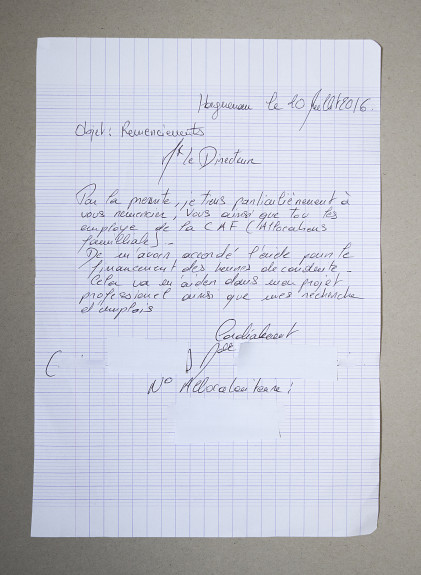 Haguenau le 20 Juillet 2016.
Objet : Remerciements
Mr le Directeur
Par la presente, je tiens particulièrement à
vous remercier, vous ainsi que tou les
employe de la CAF (Allocations
familliale) -
De m'avoir accordé l'aide pour le
financement des heures de conduite -
Cela va m aider dans mon projet
professionel ainsi que mes recherche
d'emplois
Cordialement
N° Allocataire :